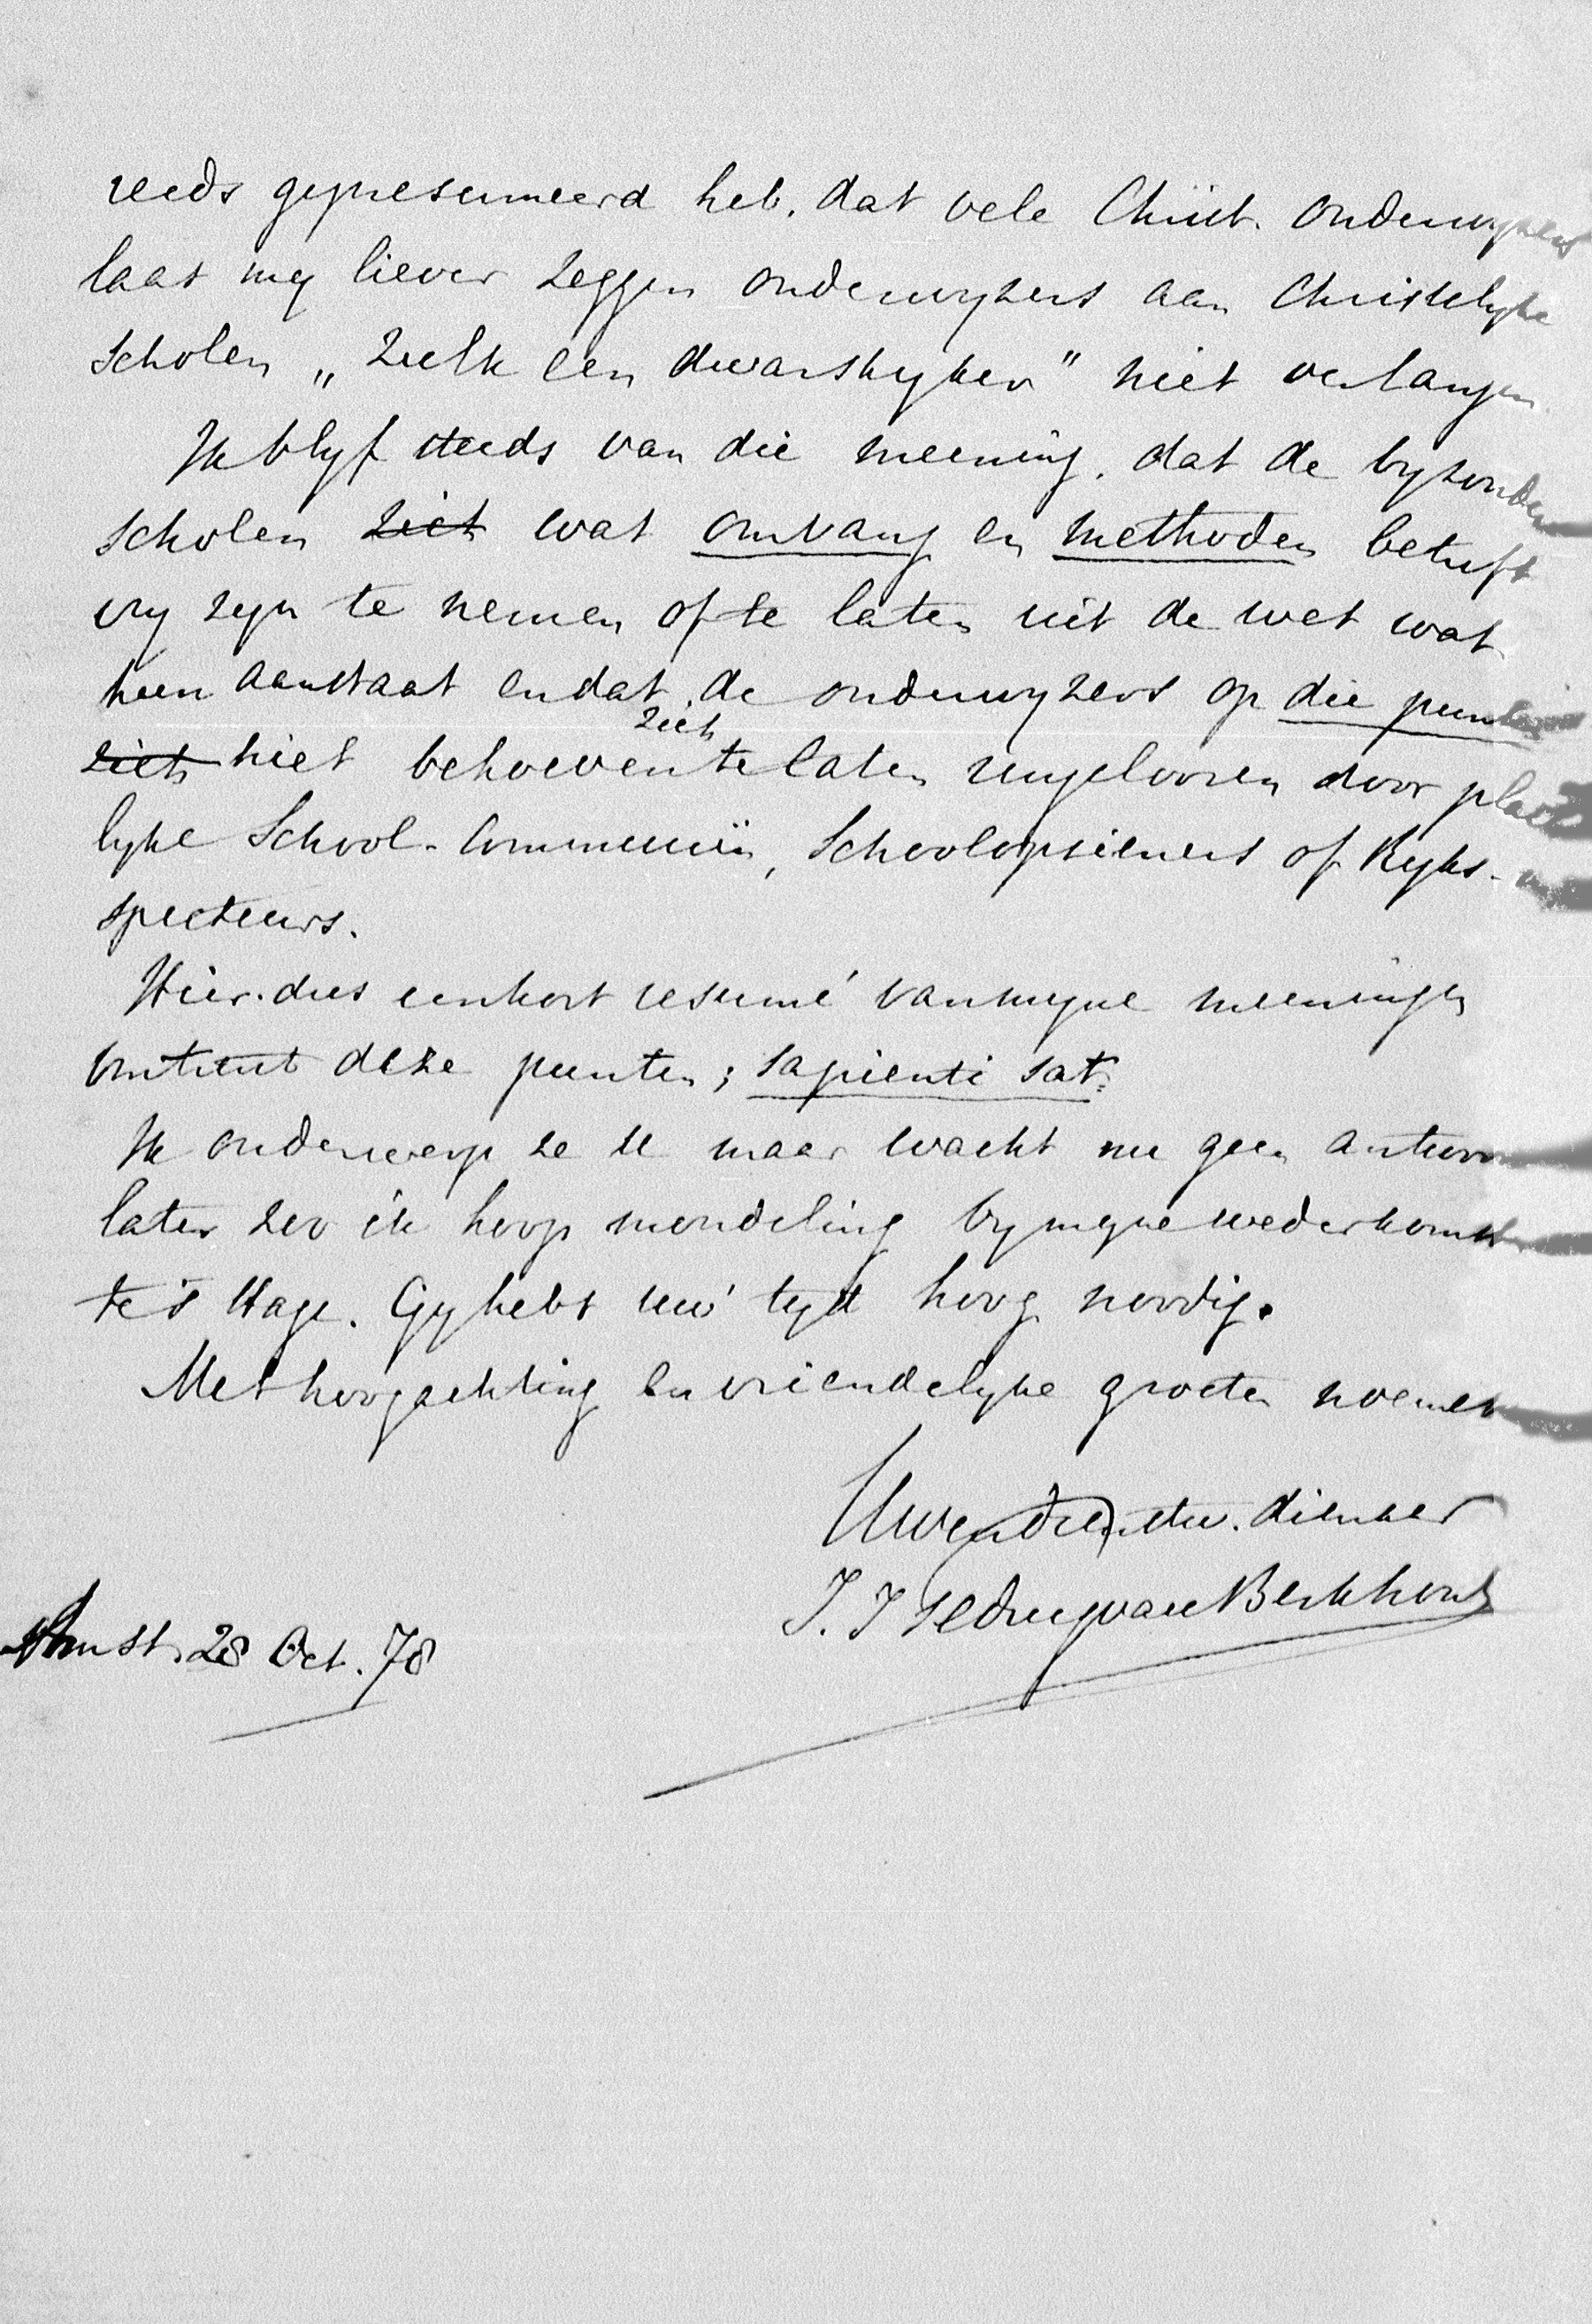 reeds gepresumeerd heb, dat vele Christ. onderwyzers
laat my liever zeggen onderwyzers aan Christelyke
scholen „zulk een dwarskyker" niet verlangen.
Ik blyf steeds van die meening, dat de byzondere
scholen zich wat omvang en methoden betreft
vry zyn te nemen of te laten uit de wet wat
hun aanstaat en dat de onderwyzers op die punten
zich
zich niet behoeven te laten ringelooren door plaatse
lyke School-Commissiën, Schoolopzieners of Ryks-in
specteurs.
Hier dus een kort resumé van myne meeningen
omtrent deze punten; sapienti sat.
Ik onderwerp ze U maar wacht nu geen antwoord
later zoo ik hoop mondeling by myne wederkomst
te 's Hage. Gy hebt uw' tyd hoog noodig.
Met hoogachting en vriendelyke groeten noemen
Uwen dienstw. dienaar
P. J. Teding van Berkhout
Amst. 28 Oct. 78